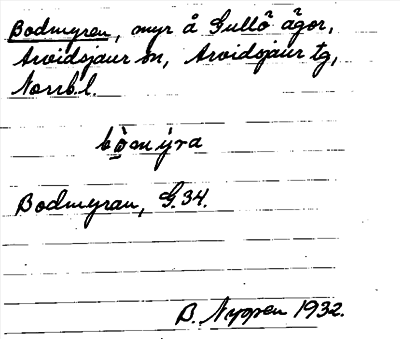 Bodmyren, myr å Gullö ägor,
Arvidsjaur sn, Arvidsjaur tg,
Norrb.l.
bòmýra
Bodmyran, G.34.
B. Nygren 1932.